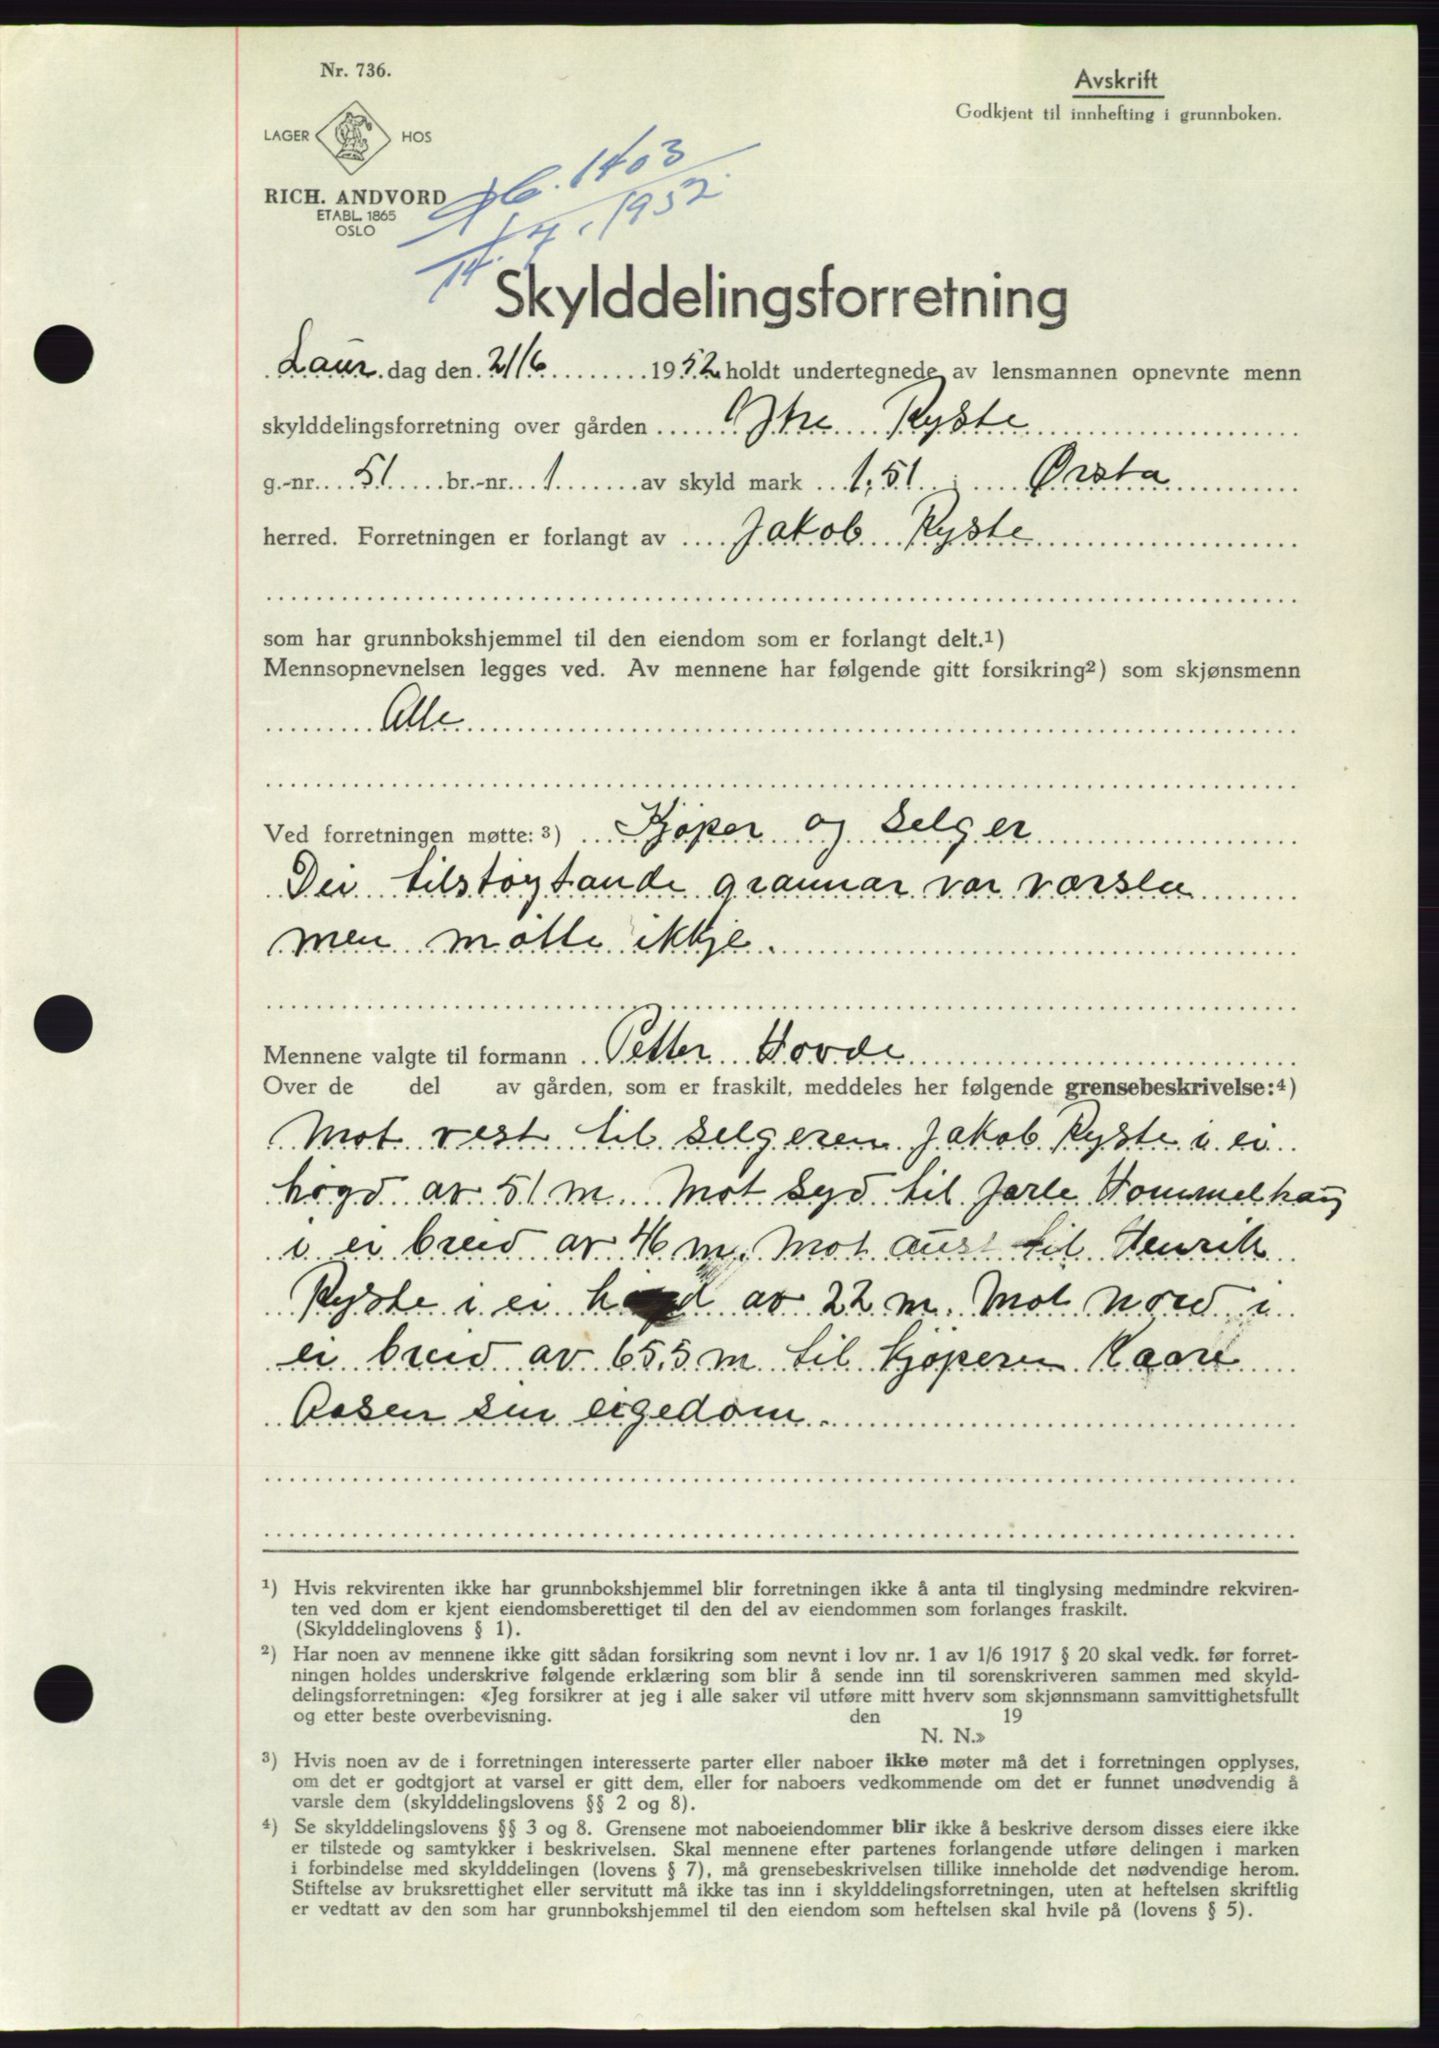 Nr. 736.
Avskrift
Godkjent til innhefting i grunnboken.
LAGER HOS
RICH. ANDVORD
ETABL. 1865
OSLO
Db. 1403
14/7. 1952.
Skylddelingsforretning
Laur.dag den 21/6 1952 holdt undertegnede av lensmannen opnevnte menn
skylddelingsforretning over gården Ytre Ryste
g.-nr. 51 br.-nr. 1 av skyld mark 1,51 i Ørsta
herred. Forretningen er forlangt av Jakob Ryste
som har grunnbokshjemmel til den eiendom som er forlangt delt.1)
Mennsopnevnelsen legges ved. Av mennene har følgende gitt forsikring2) som skjønsmenn
Alle
Ved forretningen møtte: 3) Kjøper og selger
Dei tilstøytande grannar var varsla
men møtte ikkje.
Mennene valgte til formann Petter Hovde
Over de del av gården, som er fraskilt, meddeles her følgende grensebeskrivelse:4)
Mot vest til selgeren Jakob Ryste i ei
høgd av 51 m. Mot syd til Jarle Hommelhaug
i ei breid av 46 m. Mot aust til Henrik
Ryste i ei høgd av 22 m. Mot nord i
ei breid av 65,5 m til kjøperen Kaare
Aasen sin eigedom.
1) Hvis rekvirenten ikke har grunnbokshjemmel blir forretningen ikke å anta til tinglysing medmindre rekviren-
ten ved dom er kjent eiendomsberettiget til den del av eiendommen som forlanges fraskilt.
(Skylddelinglovens § 1).
2) Har noen av mennene ikke gitt sådan forsikring som nevnt i lov nr. 1 av 1/6 1917 § 20 skal vedk. før forret-
ningen holdes underskrive følgende erklæring som blir å sende inn til sorenskriveren sammen med skyld-
delingsforretningen: «Jeg forsikrer at jeg i alle saker vil utføre mitt hverv som skjønnsmann samvittighetsfullt
og etter beste overbevisning. den 19
N. N.»
3) Hvis noen av de i forretningen interesserte parter eller naboer ikke møter må det i forretningen opplyses,
om det er godtgjort at varsel er gitt dem, eller for naboers vedkommende om det er funnet unødvendig å
varsle dem (skylddelingslovens §§ 2 og 8).
4) Se skylddelingslovens §§ 3 og 8. Grensene mot naboeiendommer blir ikke å beskrive dersom disses eiere ikke
er tilstede og samtykker i beskrivelsen. Skal mennene efter partenes forlangende utføre delingen i marken
i forbindelse med skylddelingen (lovens § 7), må grensebeskrivelsen tillike inneholde det nødvendige herom.
Stiftelse av bruksrettighet eller servitutt må ikke tas inn i skylddelingsforretningen, uten at heftelsen skriftlig
er vedtatt av den som har grunnbokshjemmel til den eiendom som heftelsen skal hvile på (lovens § 5).